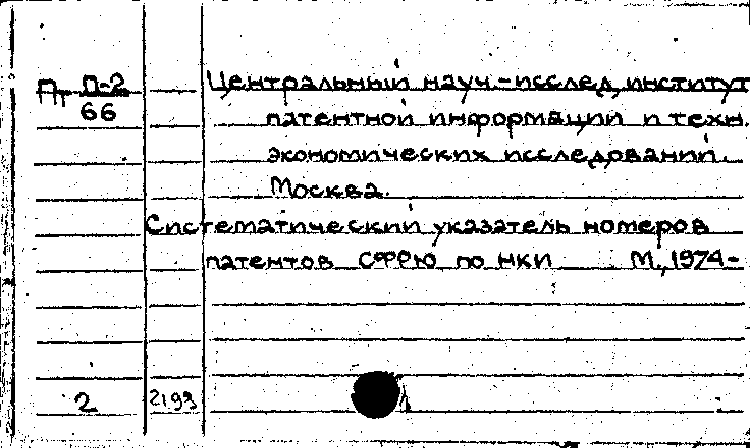 Пт П-2 Центральный науч.-исслед. институт
66
патентной информации и техн.
экономических исследований.
Москва.
Систематический указатель номеров
патентов СФРЮ по НКИ М., 1974-
2 2193